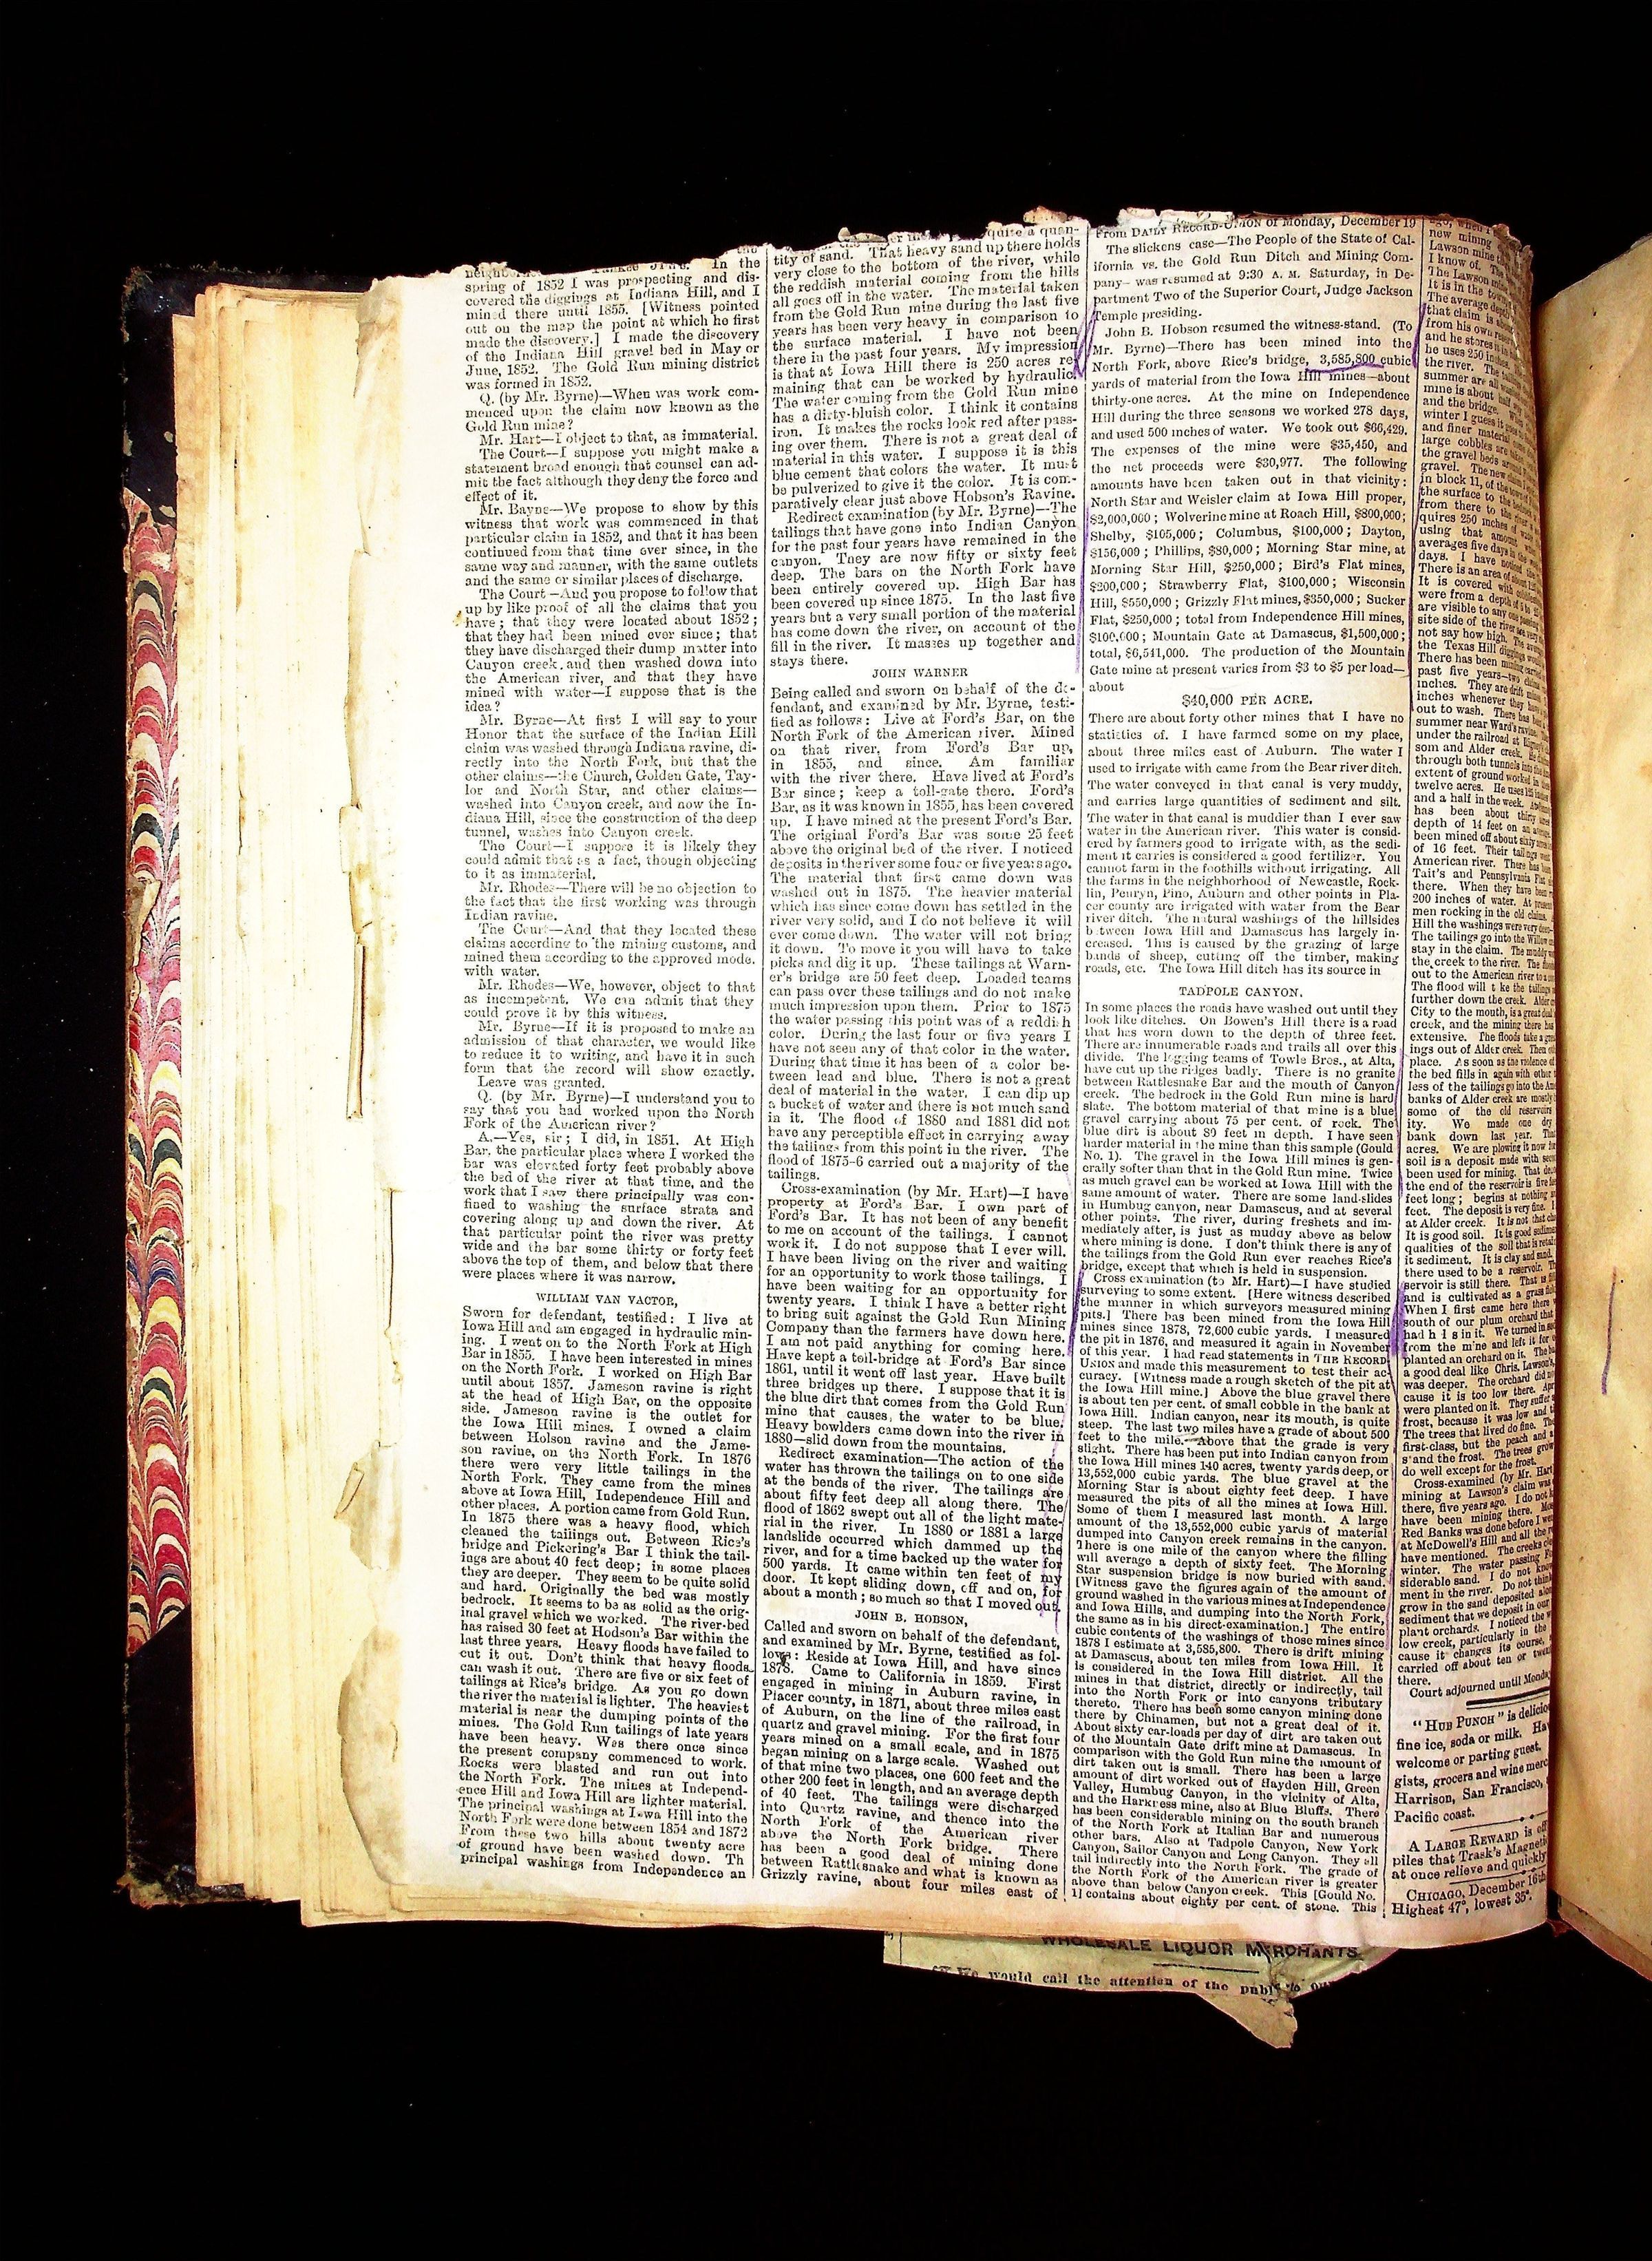 In the
spring of 1852 I was prospecting and dis-
covered the diggings at Indiana Hill, and I
mined there until 1855. [Witness pointed
out on the map the point at which he first
made the discovery.] I made the discovery
of the Indiana Hill gravel bed in May or
June, 1852. The Gold Run mining district
was formed in 1852.
Q. (by Mr. Byrne)—When was work com-
menced upon the claim now known as the
Gold Run mine?
Mr. Hart—I object to that, as immaterial.
The Court—I suppose you might make a
statement broad enough that counsel can ad-
mit the fact although they deny the force and
effect of it.
Mr. Bayne—We propose to show by this
witness that work was commenced in that
particular claim in 1852, and that it has been
continued from that time ever since, in the
same way and manner, with the same outlets
and the same or similar places of discharge.
The Court—And you propose to follow that
up by like proof of all the claims that you
have; that they were located about 1852;
that they had been mined ever since; that
they have discharged their dump matter into
Canyon creek, and then washed down into
the American river, and that they have
mined with water—I suppose that is the
idea?
Mr. Byrne—At first I will say to your
Honor that the surface of the Indian Hill
claim was washed through Indiana ravine, di-
rectly into the North Fork, but that the
other claims—the Church, Golden Gate, Tay-
lor and North Star, and other claims—
washed into Canyon creek, and now the In-
diana Hill, since the construction of the deep
tunnel, washes into Canyon creek.
The Court—I suppose it is likely they
could admit that as a fact, though objecting
to it as immaterial.
Mr. Rhodes—There will be no objection to
the fact that the first working was through
Indian ravine.
The Court—And that they located these
claims according to the mining customs, and
mined them according to the approved mode,
with water.
Mr. Rhodes—We, however, object to that
as incompetent. We can admit that they
could prove it by this witness.
Mr. Byrne—If it is proposed to make an
admission of that character, we would like
to reduce it to writing, and have it in such
form that the record will show exactly.
Leave was granted.
Q. (by Mr. Byrne)—I understand you to
say that you had worked upon the North
Fork of the American river?
A.—Yes, sir; I did, in 1851. At High
Bar, the particular place where I worked the
bar was elevated forty feet probably above
the bed of the river at that time, and the
work that I saw there principally was con-
fined to washing the surface strata and
covering along up and down the river. At
that particular point the river was pretty
wide and the bar some thirty or forty feet
above the top of them, and below that there
were places where it was narrow.
WILLIAM VAN VACTOR,
Sworn for defendant, testified: I live at
Iowa Hill and am engaged in hydraulic min-
ing. I went on to the North Fork at High
Bar in 1855. I have been interested in mines
on the North Fork. I worked on High Bar
until about 1857. Jameson ravine is right
at the head of High Bar, on the opposite
side. Jameson ravine is the outlet for
the Iowa Hill mines. I owned a claim
between Holson ravine and the Jame-
son ravine, on the North Fork. In 1876
there were very little tailings in the
North Fork. They came from the mines
above at Iowa Hill, Independence Hill and
other places. A portion came from Gold Run.
In 1875 there was a heavy flood, which
cleaned the tailings out. Between Rice's
bridge and Pickering's Bar I think the tail-
ings are about 40 feet deep; in some places
they are deeper. They seem to be quite solid
and hard. Originally the bed was mostly
bedrock. It seems to be as solid as the orig-
inal gravel which we worked. The river-bed
has raised 30 feet at Hodson's Bar within the
last three years. Heavy floods have failed to
cut it out. Don't think that heavy floods
can wash it out. There are five or six feet of
tailings at Rice's bridge. As you go down
the river the material is lighter. The heaviest
material is near the dumping points of the
mines. The Gold Run tailings of late years
have been heavy. Was there once since
the present company commenced to work.
Rocks were blasted and run out into
the North Fork. The mines at Independ-
ence Hill and Iowa Hill are lighter material.
The principal washings at Iowa Hill into the
North Fork were done between 1854 and 1872
From these two hills about twenty acre
of ground have been washed down. Th
principal washings from Independence an
quite a quan-
tity of sand. That heavy sand up there holds
very close to the bottom of the river, while
the reddish material coming from the hills
all goes off in the water. The material taken
from the Gold Run mine during the last five
years has been very heavy in comparison to
the surface material. I have not been
there in the past four years. My impression
is that at Iowa Hill there is 250 acres re-
maining that can be worked by hydraulic.
The water coming from the Gold Run mine
has a dirty-bluish color. I think it contains
iron. It makes the rocks look red after pass-
ing over them. There is not a great deal of
material in this water. I suppose it is this
blue cement that colors the water. It must
be pulverized to give it the color. It is com-
paratively clear just above Hobson's Ravine.
Redirect examination (by Mr. Byrne)—The
tailings that have gone into Indian Canyon
for the past four years have remained in the
canyon. They are now fifty or sixty feet
deep. The bars on the North Fork have
been entirely covered up. High Bar has
been covered up since 1875. In the last five
years but a very small portion of the material
has come down the river, on account of the
fill in the river. It masses up together and
stays there.
JOHN WARNER
Being called and sworn on behalf of the de-
fendant, and examined by Mr. Byrne, testi-
fied as follows: Live at Ford's Bar, on the
North Fork of the American river. Mined
on that river, from Ford's Bar up,
in 1855, and since. Am familiar
with the river there. Have lived at Ford's
Bar since; keep a toll-gate there. Ford's
Bar, as it was known in 1855, has been covered
up. I have mined at the present Ford's Bar.
The original Ford's Bar was some 25 feet
above the original bed of the river. I noticed
deposits in the river some four or five years ago.
The material that first came down was
washed out in 1875. The heavier material
which has since come down has settled in the
river very solid, and I do not believe it will
ever come down. The water will not bring
it down. To move it you will have to take
picks and dig it up. These tailings at Warn-
er's bridge are 50 feet deep. Loaded teams
can pass over these tailings and do not make
much impression upon them. Prior to 1875
the water passing this point was of a reddish
color. During the last four or five years I
have not seen any of that color in the water.
During that time it has been of a color be-
tween lead and blue. There is not a great
deal of material in the water. I can dip up
a bucket of water and there is not much sand
in it. The flood of 1880 and 1881 did not
have any perceptible effect in carrying away
the tailings from this point in the river. The
flood of 1875-6 carried out a majority of the
tailings.
Cross-examination (by Mr. Hart)—I have
property at Ford's Bar. I own part of
Ford's Bar. It has not been of any benefit
to me on account of the tailings. I cannot
work it. I do not suppose that I ever will.
I have been living on the river and waiting
for an opportunity to work those tailings. I
have been waiting for an opportunity for
twenty years. I think I have a better right
to bring suit against the Gold Run Mining
Company than the farmers have down here.
I am not paid anything for coming here.
Have kept a toll-bridge at Ford's Bar since
1861, until it went off last year. Have built
three bridges up there. I suppose that it is
the blue dirt that comes from the Gold Run
mine that causes the water to be blue.
Heavy bowlders came down into the river in
1880—slid down from the mountains.
Redirect examination—The action of the
water has thrown the tailings on to one side
at the bends of the river. The tailings are
about fifty feet deep all along there. The
flood of 1862 swept out all of the light mate-
rial in the river. In 1880 or 1881 a large
landslide occurred which dammed up the
river, and for a time backed up the water for
500 yards. It came within ten feet of my
door. It kept sliding down, off and on, for
about a month; so much so that I moved out.
JOHN B. HOBSON,
Called and sworn on behalf of the defendant,
and examined by Mr. Byrne, testified as fol-
lows: Reside at Iowa Hill, and have since
1878. Came to California in 1859. First
engaged in mining in Auburn ravine, in
Placer county, in 1871, about three miles east
of Auburn, on the line of the railroad, in
quartz and gravel mining. For the first four
years mined on a small scale, and in 1875
began mining on a large scale. Washed out
of that mine two places, one 600 feet and the
other 200 feet in length, and an average depth
of 40 feet. The tailings were discharged
into Quartz ravine, and thence into the
North Fork of the American river
above the North Fork bridge. There
has been a good deal of mining done
between Rattlesnake and what is known as
Grizzly ravine, about four miles east of
From DAILY RECORD-UNION of Monday, December 19
The slickens case—The People of the State of Cal-
ifornia vs. the Gold Run Ditch and Mining Com-
pany—was resumed at 9:30 A. M. Saturday, in De-
partment Two of the Superior Court, Judge Jackson
Temple presiding.
John B. Hobson resumed the witness-stand. (To
Mr. Byrne)—There has been mined into the
North Fork, above Rice's bridge, 3,585,800 cubic
yards of material from the Iowa Hill mines—about
thirty-one acres. At the mine on Independence
Hill during the three seasons we worked 278 days,
and used 500 inches of water. We took out $66,429.
The expenses of the mine were $35,450, and
the net proceeds were $30,977. The following
amounts have been taken out in that vicinity:
North Star and Weisler claim at Iowa Hill proper,
$2,000,000; Wolverine mine at Roach Hill, $800,000;
Shelby, $105,000; Columbus, $100,000; Dayton,
$156,000; Phillips, $80,000; Morning Star mine, at
Morning Star Hill, $250,000; Bird's Flat mines,
$200,000; Strawberry Flat, $100,000; Wisconsin
Hill, $550,000; Grizzly Flat mines, $350,000; Sucker
Flat, $250,000; total from Independence Hill mines,
$100,000; Mountain Gate at Damascus, $1,500,000;
total, $6,541,000. The production of the Mountain
Gate mine at present varies from $3 to $5 per load—
about
$40,000 PER ACRE.
There are about forty other mines that I have no
statistics of. I have farmed some on my place,
about three miles east of Auburn. The water I
used to irrigate with came from the Bear river ditch.
The water conveyed in that canal is very muddy,
and carries large quantities of sediment and silt.
The water in that canal is muddier than I ever saw
water in the American river. This water is consid-
ered by farmers good to irrigate with, as the sedi-
ment it carries is considered a good fertilizer. You
cannot farm in the foothills without irrigating. All
the farms in the neighborhood of Newcastle, Rock-
lin, Penryn, Pino, Auburn and other points in Pla-
cer county are irrigated with water from the Bear
river ditch. The natural washings of the hillsides
between Iowa Hill and Damascus has largely in-
creased. This is caused by the grazing of large
bands of sheep, cutting off the timber, making
roads, etc. The Iowa Hill ditch has its source in
TADPOLE CANYON.
In some places the roads have washed out until they
look like ditches. On Bowen's Hill there is a road
that has worn down to the depth of three feet.
There are innumerable roads and trails all over this
divide. The logging teams of Towle Bros., at Alta,
have cut up the ridges badly. There is no granite
between Rattlesnake Bar and the mouth of Canyon
creek. The bedrock in the Gold Run mine is hard
slate. The bottom material of that mine is a blue
gravel carrying about 75 per cent. of rock. The
blue dirt is about 80 feet in depth. I have seen
harder material in the mine than this sample (Gould
No. 1). The gravel in the Iowa Hill mines is gen-
erally softer than that in the Gold Run mine. Twice
as much gravel can be worked at Iowa Hill with the
same amount of water. There are some land-slides
in Humbug canyon, near Damascus, and at several
other points. The river, during freshets and im-
mediately after, is just as muddy above as below
where mining is done. I don't think there is any of
the tailings from the Gold Run ever reaches Rice's
bridge, except that which is held in suspension.
Cross examination (to Mr. Hart)—I have studied
surveying to some extent. [Here witness described
the manner in which surveyors measured mining
pits.] There has been mined from the Iowa Hill
mines since 1878, 72,600 cubic yards. I measured
the pit in 1876, and measured it again in November
of this year. I had read statements in THE RECORD-
UNION and made this measurement to test their ac-
curacy. [Witness made a rough sketch of the pit at
the Iowa Hill mine.] Above the blue gravel there
is about ten per cent. of small cobble in the bank at
Iowa Hill. Indian canyon, near its mouth, is quite
steep. The last two miles have a grade of about 500
feet to the mile. Above that the grade is very
slight. There has been put into Indian canyon from
the Iowa Hill mines 140 acres, twenty yards deep, or
13,552,000 cubic yards. The blue gravel at the
Morning Star is about eighty feet deep. I have
measured the pits of all the mines at Iowa Hill.
Some of them I measured last month. A large
amount of the 13,552,000 cubic yards of material
dumped into Canyon creek remains in the canyon.
There is one mile of the canyon where the filling
will average a depth of sixty feet. The Morning
Star suspension bridge is now buried with sand.
[Witness gave the figures again of the amount of
ground washed in the various mines at Independence
and Iowa Hills, and dumping into the North Fork,
the same as in his direct-examination.] The entire
cubic contents of the washings of those mines since
1878 I estimate at 3,585,800. There is drift mining
at Damascus, about ten miles from Iowa Hill. It
is considered in the Iowa Hill district. All the
mines in that district, directly or indirectly, tail
into the North Fork or into canyons tributary
thereto. There has been some canyon mining done
there by Chinamen, but not a great deal of it.
About sixty car-loads per day of dirt are taken out
of the Mountain Gate drift mine at Damascus. In
comparison with the Gold Run mine the amount of
dirt taken out is small. There has been a large
amount of dirt worked out of Hayden Hill, Green
Valley, Humbug Canyon, in the vicinity of Alta,
and the Harkness mine, also at Blue Bluffs. There
has been considerable mining on the south branch
of the North Fork at Italian Bar and numerous
other bars. Also at Tadpole Canyon, New York
Canyon, Sailor Canyon and Long Canyon. They all
tail indirectly into the North Fork. The grade of
the North Fork of the American river is greater
above than below Canyon creek. This [Gould No.
1] contains about eighty per cent. of stone. This
ago, when
new mining
Lawson mine
I know of. The
The Lawson
It is in the town
The average depth
that claim is about
from his own
and he stores it in
he uses 250 inches
the river. The
summer are all
mine is about half
and the bridge.
winter I guess it
and finer material
large cobbles are
the gravel beds
gravel. The new claim
in block 11, of the town
the surface to the
from there to the river
quires 250 inches of
using that amount
averages five days in
days. I have noticed
There is an area of about
It is covered with
were from a depth of 5 to
are visible to any one passing
site side of the river
not say how high. The
the Texas Hill diggings
There has been mining
past five years—two
inches. They are drift
inches whenever they have
out to wash. There has
summer near Ward's ravine.
under the railroad at
som and Alder creek. He
through both tunnels into the
extent of ground worked
twelve acres. He uses 125 inches
and a half in the week.
has been about thirty
depth of 14 feet on an average
been mined off about sixty acres
of 16 feet. Their tailings went
American river. There has been
Tait's and Pennsylvania Flat
there. When they have been
200 inches of water. At present
men rocking in the old claims.
Hill the washings were very
The tailings go into the Willow
stay in the claim. The muddy
the creek to the river. The
out to the American river to a
The flood will take the tailings
further down the creek. Alder
City to the mouth, is a great deal
creek, and the mining there has
extensive. The floods take a great
ings out of Alder creek. Then
place. As soon as the violence of
the bed fills in again with other
less of the tailings go into the Ame
banks of Alder creek are mostly
some of the old reservoirs
ity. We made one dry
bank down last year.
acres. We are plowing it now
soil is a deposit made with
been used for mining. That
the end of the reservoir is five
feet long; begins at nothing
feet. The deposit is very fine. I
at Alder creek. It is not that
It is good soil. It is good sediment
qualities of the soil that is
it sediment. It is clay and sand.
there used to be a reservoir.
servoir is still there. That is
and is cultivated as a grass
When I first came here there
south of our plum orchard that
had in it. We turned in
from the mine and left it for
planted an orchard on it. The
a good deal like Chris. Lawson's,
was deeper. The orchard did
cause it is too low there.
were planted on it. They suffer
frost, because it was low and
The trees that lived do fine. The
first-class, but the peach and a
sand the frost. The trees grow
do well except for the frost.
Cross-examined (by Mr. Hart
mining at Lawson's claim was
there, five years ago. I do not
have been mining there.
Red Banks was done before I
at McDowell's Hill and all the
have mentioned. The creeks
winter. The water passing
siderable sand. I do not know
ment in the river. Do not think
grow in the sand deposited
sediment that we deposit in our
plant orchards. I noticed the
low creek, particularly in the
cause it changes its course,
carried off about ten or
there.
Court adjourned until Monday
"HUB PUNCH" is delicious
fine ice, soda or milk.
welcome or parting guest.
gists, grocers and wine merc
Harrison, San Francisco,
Pacific coast.
A LARGE REWARD is
piles that Trask's Magnetic
at once relieve and quickly
CHICAGO, December 16th
Highest 47°, lowest 35°.
WHOLESALE LIQUOR MERCHANTS
We would call the attention of the public to our